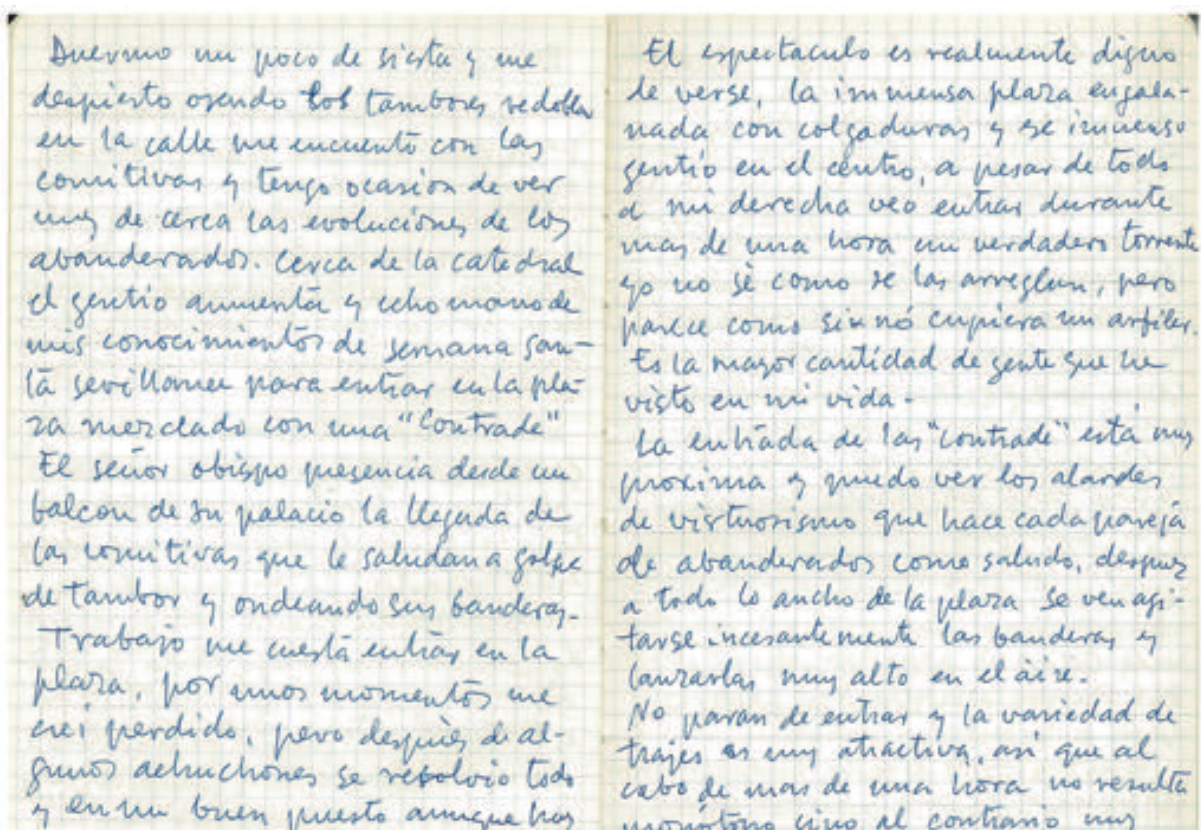 Duermo un poco de siesta y me
despierto oyendo los tambores redoblar
en la calle me encuentro con las
comitivas y tengo ocasion de ver
muy de cerca las evoluciones de los
abanderados. Cerca de la catedral
el gentio aumenta y echo mano de
mis conocimientos de semana san-
ta sevillana para entrar en la pla-
za mezclado con una "Contrade"
El señor obispo presencia desde un
balcon de su palacio la llegada de
las comitivas que le saludan a golpe
de tambor y ondeando sus banderas.
Trabajo me cuesta entrar en la
plaza, por unos momentos me
crei perdido, pero después de al-
gunos achuchones se resolvio todo
y en un buen puesto aunque hay
El espectaculo es realmente digno
de verse, la immensa plaza engala-
nada con colgaduras y ese immenso
gentio en el centro, a pesar de todo
a mi derecha veo entrar durante
mas de una hora un verdadero torrente
yo no sè como se las arreglan, pero
parece como si no cupiera un arfiler.
Es la mayor cantidad de gente que he
visto en mi vida-
La entrada de las "contrade" está muy
proxima y puedo ver los alardes
de virtuosismo que hace cada pareja
de abanderados como saludo, despues
a todo lo ancho de la plaza se ven agi-
tarse incesantemente las banderas y
lanzarlas muy alto en el àire.
No paran de entrar y la variedad de
trajes es muy atractiva, asi que al
cabo de mas de una hora no resulta
monótono sino al contrario muy